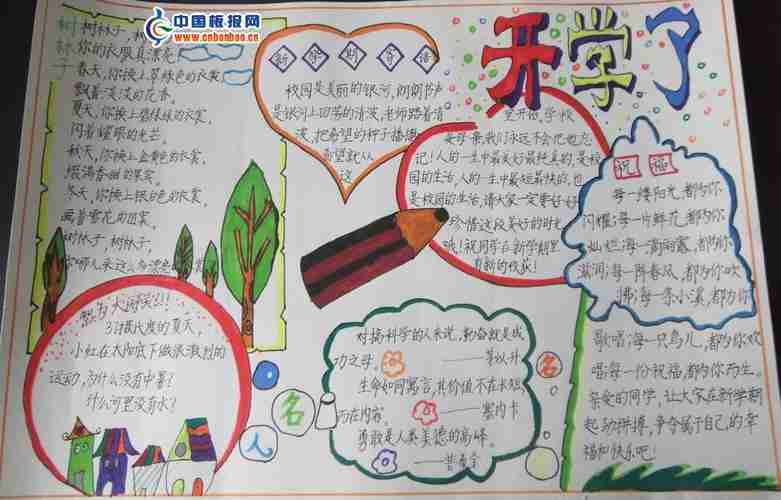 中国板报网
www.cnbanbao.cn
开学了
树林子
树林子,
你的衣服真漂亮
春天,你换上翠绿色的衣裳,
飘着淡淡的花香。
夏天,你换上碧绿的衣裳,
闪着耀眼的光芒。
秋天,你换上金黄色的衣裳,
缀满香甜的果实。
冬天,你换上银白色的衣裳,
画着雪花的图案。
树林子,树林子,
新学期寄语
校园是美丽的银河,朗朗书声
是银河上回荡的清波,老师踏着清
波,把希望的种子播撒,
希望就从
这
里开始,学校
是母亲,我们永远不会把她忘
记!人的一生中最美好最纯真的,是校
园的生活,人的一生中最短最快的,也
是校园的生活,请大家一定要好好
珍惜这段美好的时光
哦!祝同学在新学期里
有新的收获!
祝福
每一缕阳光,都为你
闪耀;每一片鲜花,都为你
灿烂;每一滴雨露,都为你
滋润;每一阵春风,都为你吹
拂;每一条小溪,都为你
歌唱;每一只鸟儿,都为你欢
唱;每一份祝福,都为你而生。
亲爱的同学,让大家在新学期
起劲拼搏,争夺属于自己的幸
福和快乐吧!
智力大冲关!!!
38摄氏度的夏天,
小红在太阳底下做很激烈的
运动,为什么没有中暑?
什么河里没有水?
名人名言
对搞科学的人来说,勤奋就是成
功之母。
——茅以升
生命如同寓言,其价值不在长短,
而在内容。
——塞内卡
勇敢是人类美德的高峰。